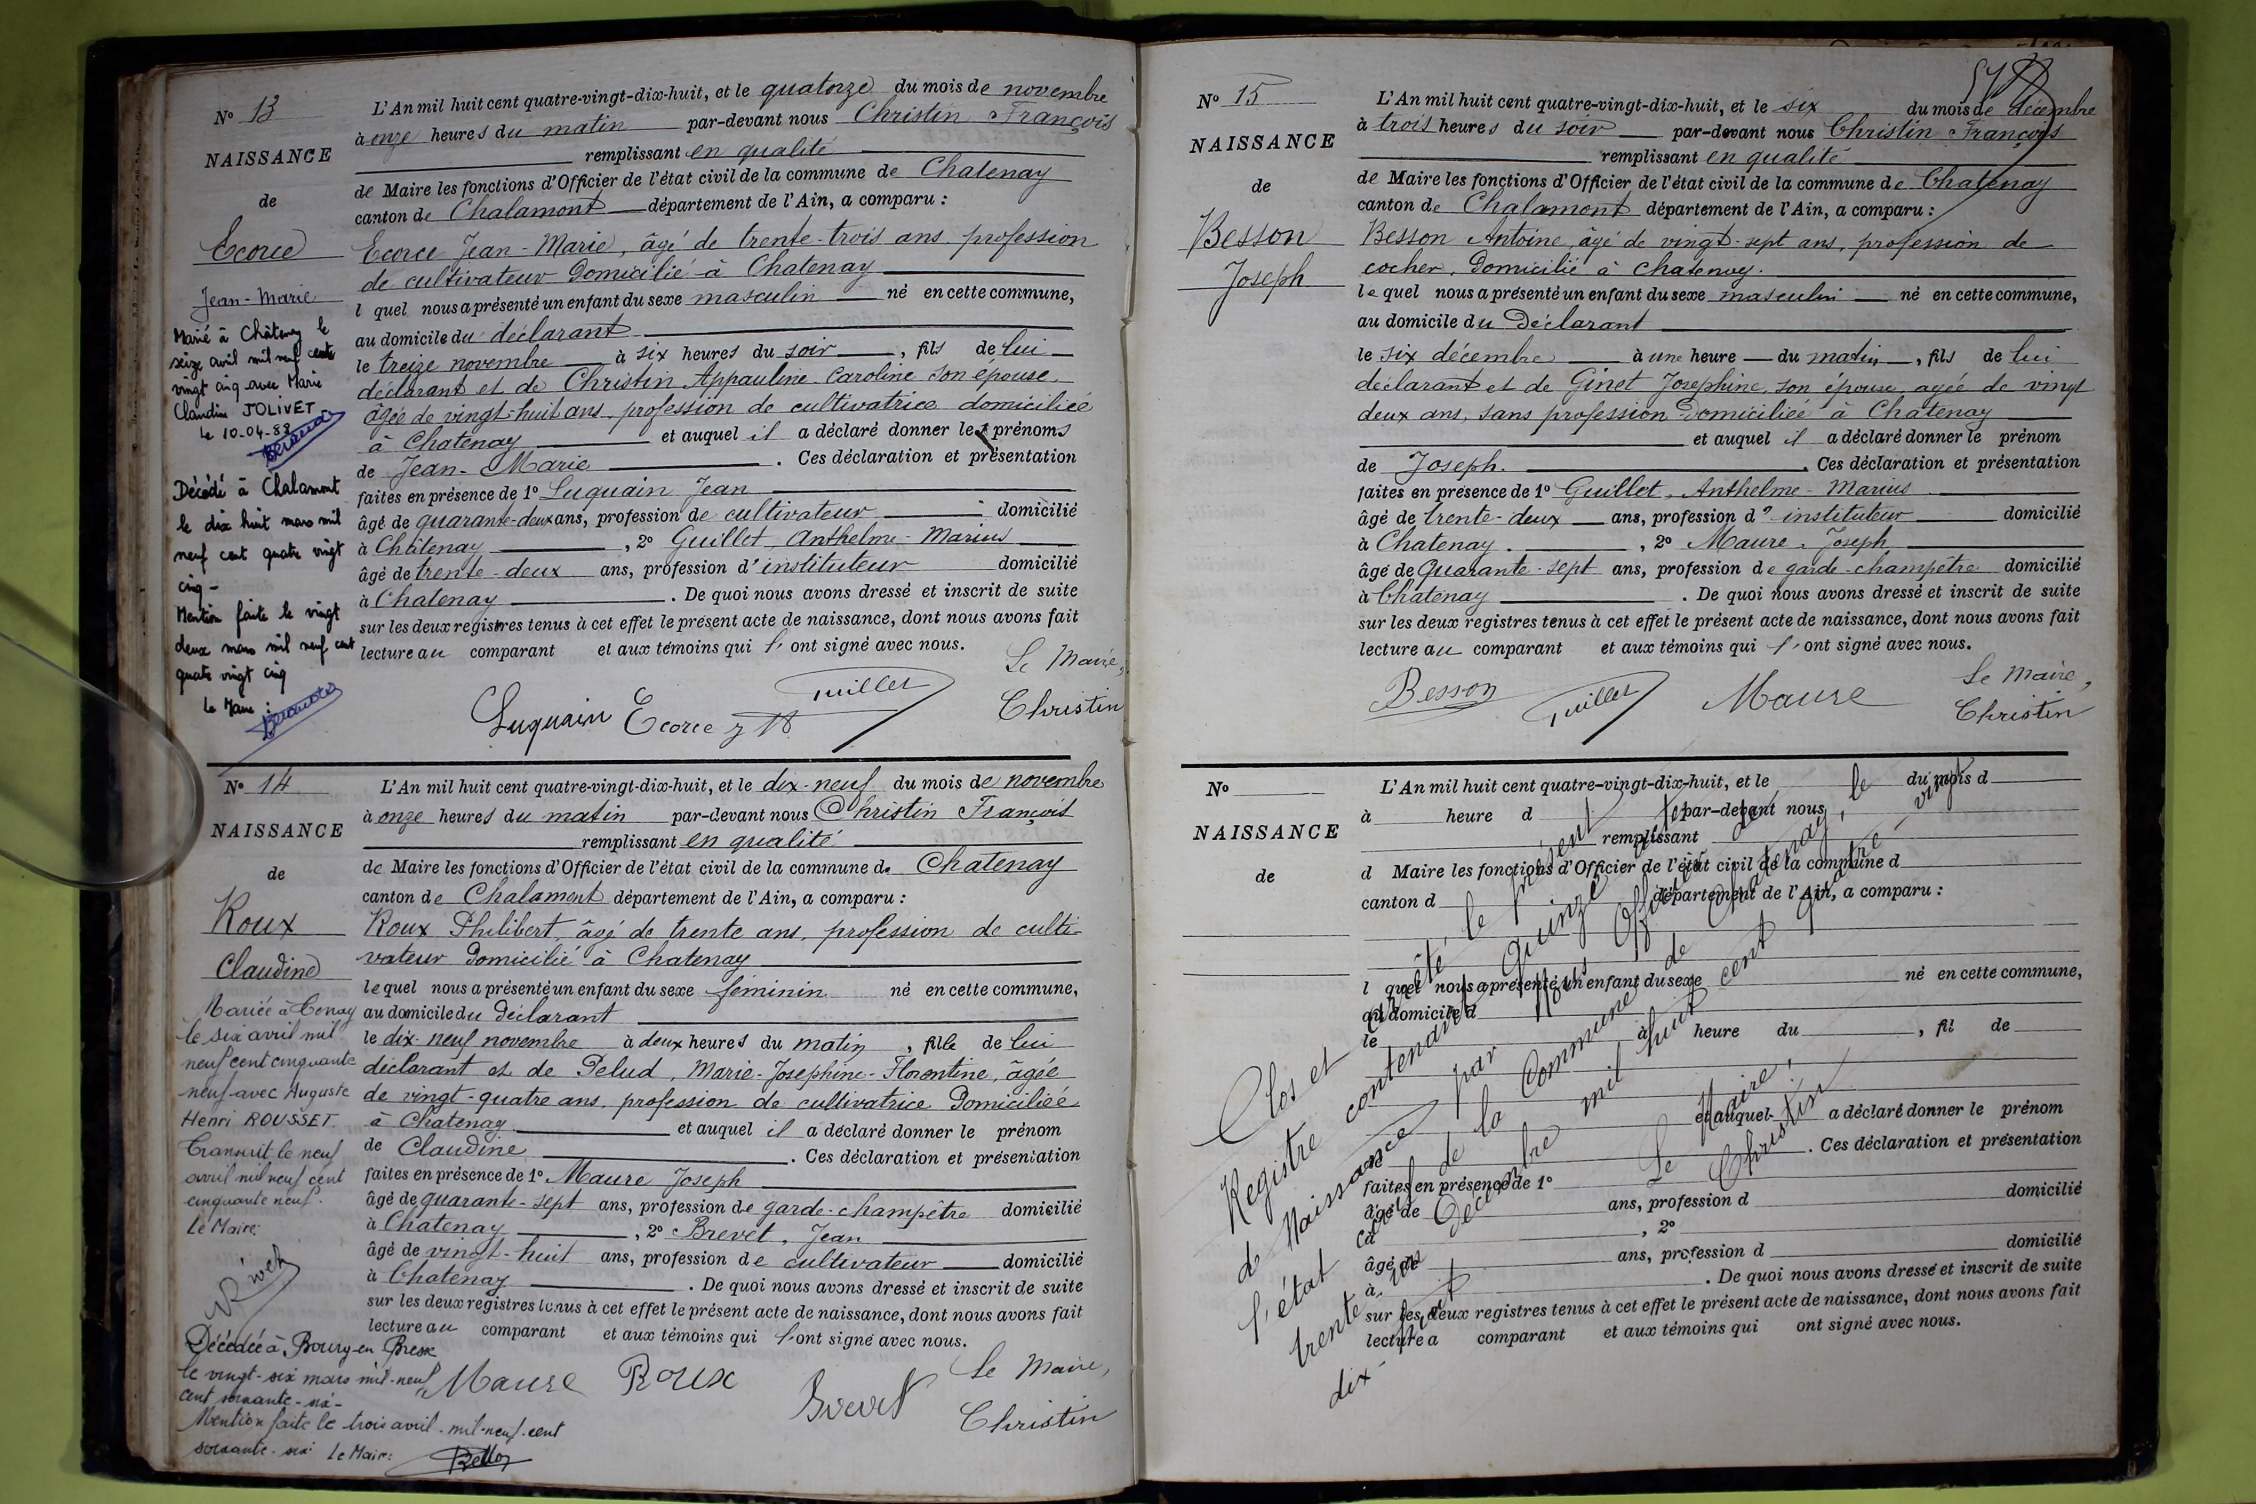 Nº 13
NAISSANCE
de
Ecorce
Jean-Marie
Marié à Châtenay le
seize avril mil neuf cent
vingt cinq avec Marie
Claudine JOLIVET
le 10-04-88
Décédé à Chalamont
le dix huit mars mil
neuf cent quatre vingt
cinq -
Mention faite le vingt
deux mars mil neuf cent
quatre vingt cinq
Le Maire :
L'An mil huit cent quatre-vingt-dix-huit, et le quatorze du mois de novembre
à onze heures du matin par-devant nous Christin François
remplissant en qualité
de Maire les fonctions d'Officier de l'état civil de la commune de Chatenay
canton de Chalamont département de l'Ain, a comparu :
Ecorce Jean-Marie, âgé de trente-trois ans profession
de cultivateur Domicilié à Chatenay
l quel nous a présenté un enfant du sexe masculin né en cette commune,
au domicile du déclarant
le treize novembre à six heures du soir, fils de lui
déclarant et de Christin Appauline Caroline son épouse
âgée de vingt-huit ans, profession de cultivatrice domiciliée
à Chatenay et auquel il a déclaré donner les prénoms
de Jean-Marie. Ces déclaration et présentation
faites en présence de 1º Luquain Jean
âgé de quarante-deux ans, profession de cultivateur domicilié
à Châtenay, 2º Guillet Anthelme-Marius
âgé de trente-deux ans, profession d'instituteur domicilié
à Chatenay. De quoi nous avons dressé et inscrit de suite
sur les deux registres tenus à cet effet le présent acte de naissance, dont nous avons fait
lecture au comparant et aux témoins qui l'ont signé avec nous.
Le Maire,
Luquain Ecorce Guillet Christin
Nº 14
NAISSANCE
de
Roux
Claudine
Mariée à Tenay
le six avril mil
neuf cent cinquante
neuf avec Auguste
Henri ROUSSET.
Transcrit le neuf
avril mil neuf cent
cinquante neuf.
Le Maire:
Décédée à Bourg-en Bresse
le vingt-six mars mil-neuf
cent soixante-six-
Mention faite le trois avril-mil-neuf-cent
soixante-six Le Maire:
L'An mil huit cent quatre-vingt-dix-huit, et le dix-neuf du mois de novembre
à onze heures du matin par-devant nous Christin François
remplissant en qualité
de Maire les fonctions d'Officier de l'état civil de la commune de Chatenay
canton de Chalamont département de l'Ain, a comparu :
Roux Philibert, âgé de trente ans, profession de culti-
vateur Domicilié à Chatenay
lequel nous a présenté un enfant du sexe féminin né en cette commune,
au domicile du déclarant
le dix-neuf novembre à deux heures du matin, fille de lui
déclarant et de Pelud, Marie-Josephine-Florentine, âgée
de vingt-quatre ans, profession de cultivatrice Domiciliée
à Chatenay et auquel il a déclaré donner le prénom
de Claudine. Ces déclaration et présentation
faites en présence de 1º Maure Joseph
âgé de quarante-sept ans, profession de garde-champêtre domicilié
à Chatenay, 2º Brevet, Jean
âgé de vingt-huit ans, profession de cultivateur domicilié
à Chatenay. De quoi nous avons dressé et inscrit de suite
sur les deux registres tenus à cet effet le présent acte de naissance, dont nous avons fait
lecture au comparant et aux témoins qui l'ont signé avec nous.
Le Maire,
Maure Roux Brevet Christin
Nº 15
NAISSANCE
de
Besson
Joseph
L'An mil huit cent quatre-vingt-dix-huit, et le six du mois de décembre
à trois heures du soir par-devant nous Christin François
remplissant en qualité
de Maire les fonctions d'Officier de l'état civil de la commune de Chatenay
canton de Chalamont département de l'Ain, a comparu :
Besson Antoine, âgé de vingt-sept ans, profession de
cocher, Domicilié à Chatenay.
lequel nous a présenté un enfant du sexe masculin né en cette commune,
au domicile du Déclarant
le six décembre à une heure du matin, fils de lui
déclarant et de Ginet Josephine, son épouse, agée de vingt
deux ans, sans profession Domiciliée à Chatenay
et auquel il a déclaré donner le prénom
de Joseph. Ces déclaration et présentation
faites en présence de 1º Guillet, Anthelme-Marius
âgé de trente-deux ans, profession d'instituteur domicilié
à Chatenay., 2º Maure, Joseph
âgé de Quarante-sept ans, profession de garde-champêtre domicilié
à Chatenay. De quoi nous avons dressé et inscrit de suite
sur les deux registres tenus à cet effet le présent acte de naissance, dont nous avons fait
lecture au comparant et aux témoins qui l'ont signé avec nous.
Le Maire,
Besson Guillet Maure Christin
Nº
NAISSANCE
de
L'An mil huit cent quatre-vingt-dix-huit, et le du mois d
à heure d par-devant nous
remplissant
d Maire les fonctions d'Officier de l'état civil de la commune d
canton d département de l'Ain, a comparu :
l quel nous a présenté un enfant du sexe né en cette commune,
au domicile d
le à heure du, fil de
et auquel a déclaré donner le prénom
de. Ces déclaration et présentation
faites en présence de 1º
âgé de ans, profession d domicilié
à, 2º
âgé de ans, profession d domicilié
à. De quoi nous avons dressé et inscrit de suite
sur les deux registres tenus à cet effet le présent acte de naissance, dont nous avons fait
lecture a comparant et aux témoins qui ont signé avec nous.
Clos et arrêté le présent
Registre contenant quinze actes
de Naissance par Nous Officier de
l'état civil de la Commune de Chatenay, le
trente-un Décembre mil huit cent quatre-vingt
dix-huit
Le Maire,
Christin